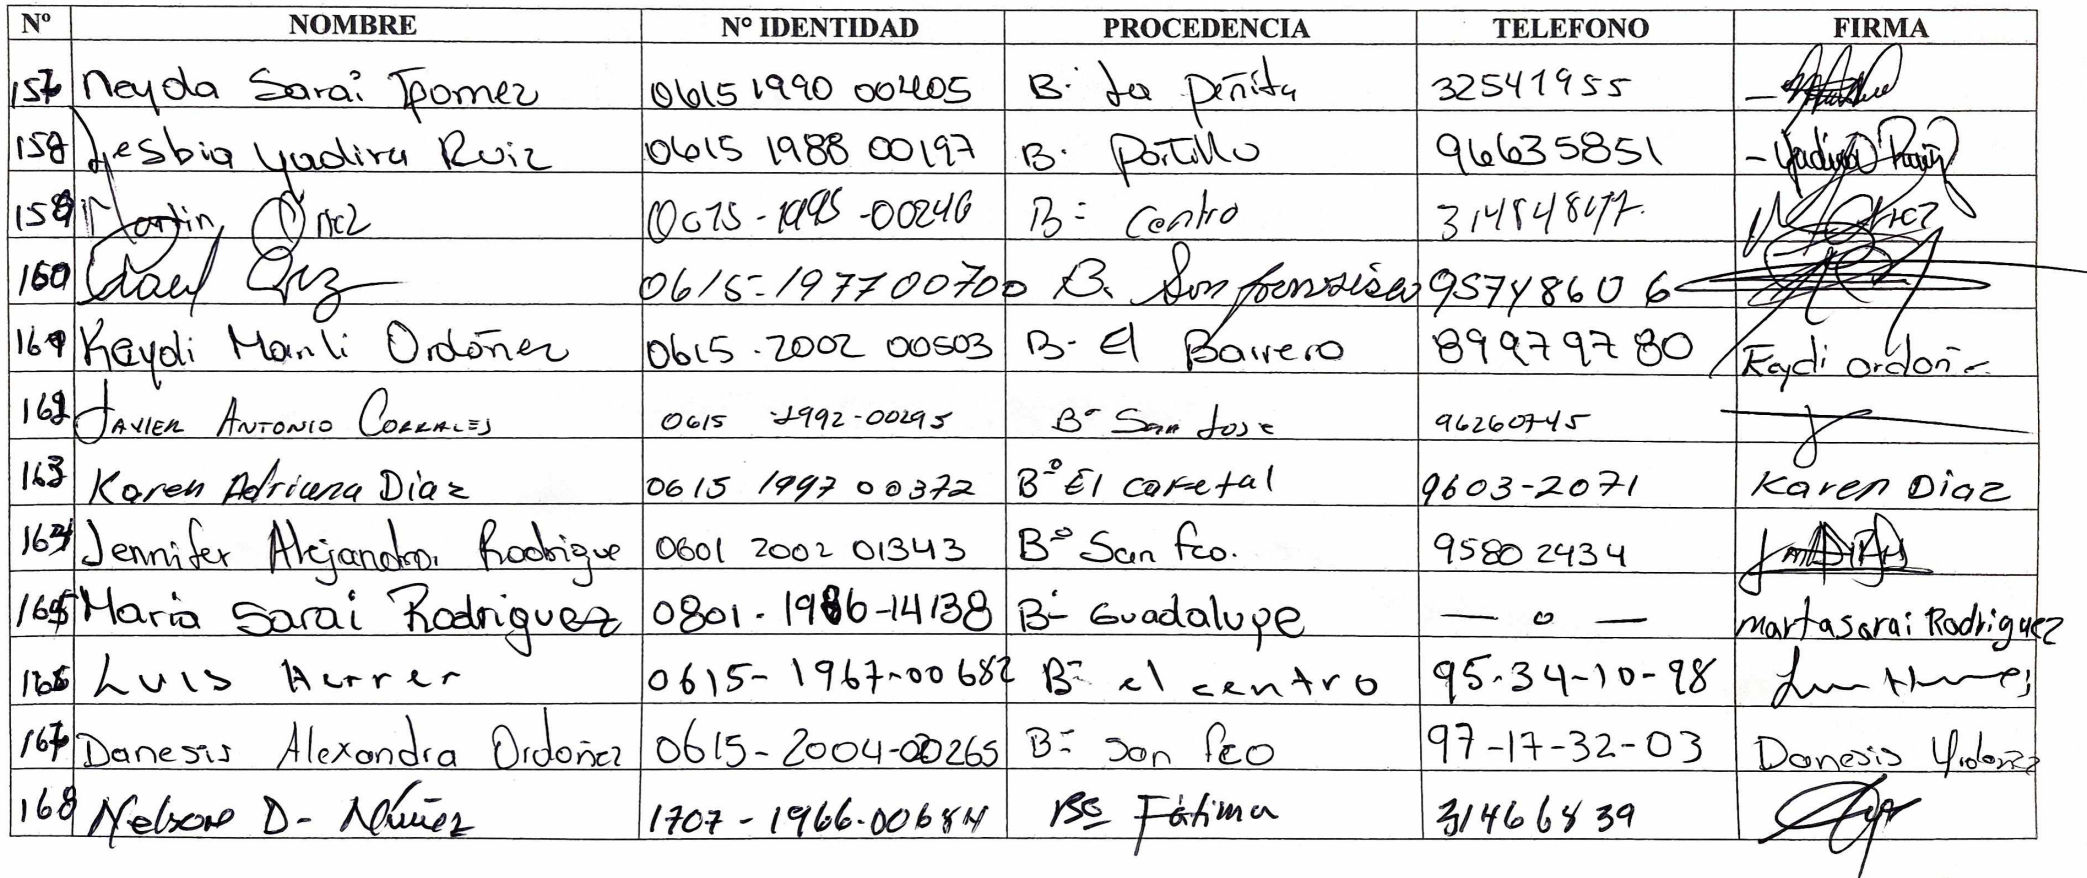 Nº NOMBRE Nº IDENTIDAD PROCEDENCIA TELEFONO FIRMA
157 Neyda Sarai Gomez 0615 1990 00405 B. La Peñita 32541955
158 Lesbia Yadira Ruiz 0615 1988 00197 B. Portillo 96635851 Yadira Ruiz
159 Martin 0615-1995-00246 B= Centro
160 0615-1977 00700 B. San francisco 95748606
161 Keydi Marili Ordóñez 0615-2002 00503 B- El Barrero 89979780 Keydi Ordoñ
162 JAVIER ANTONIO CORRALES 0615 -1992-00295 Bº San Jose 96260745
163 Karen Adriana Diaz 0615 1997 00372 Bº El cafetal 9603-2071 Karen Diaz
164 Jennifer Alejandra Rodrigue 0601 2002 01343 Bº San Fco. 95802434
165 Maria Sarai Rodriguez 0801-1986-14138 Bº Guadalupe — o — martasarai Rodriguez
166 Luis Herrer 0615-1967-00682 Bº el centro 95-34-10-98
167 Danesis Alexandra Ordoñez 0615-2004-00265 Bº San Fco 97-17-32-03 Danesis Ordoñez
168 Nelson D- Núñez 1707-1966-00684 Bº Fátima 31466839